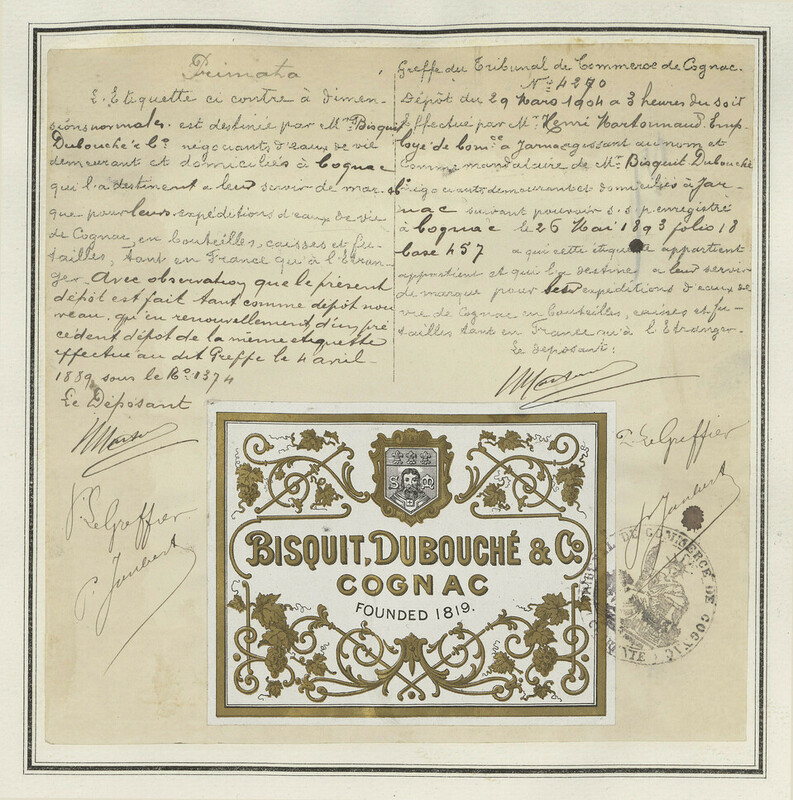 Primata
L'Etiquette ci contre à dimen-
sions normales est destinée par Mrs Bisquit
Dubouché & Co négociants d'eaux de vie
demeurant et domiciliés à Cognac
qui l'a destinent a leur servir de mar-
que pour leurs expéditions d'eaux de vie
de Cognac, en bouteilles, caisses et fu-
tailles, tant en France qu'à l'Etran-
ger. Avec observation que le présent
dépôt est fait tant comme dépôt nou
veau, qu'en renouvellement d'un pré
cédent dépôt de la même étiquette
effectué au dit Greffe le 4 avril
1889 sous le No 1374
Le Déposant
P. Le Greffier
P. Jaubert
Greffe du Tribunal de Commerce de Cognac.
No 4270
Dépôt du 29 Mars 1904 a 3 heures du soir
effectué par Mr Henri Emp
loyé de Comce a Jarnac agissant au nom et
comme mandataire de Mrs Bisquit Dubouché
& Co négociants demeurant et domiciliés à Jar-
nac suivant pouvoir s.s.p. enregistré
à Cognac le 26 Mai 1893 folio 18
case 457 a qui cette étiquette appartient
appartient et qui l'a destine a leur servir
de marque pour leurs expéditions d'eaux de
vie de Cognac en bouteilles, caisses et fu-
tailles tant en France qu'à l'Etranger.
Le déposant:
P. Le Greffier
P. Jaubert
S M
BISQUIT, DUBOUCHÉ & Co
COGNAC
FOUNDED 1819.
DE COMMERCE DE COGNAC